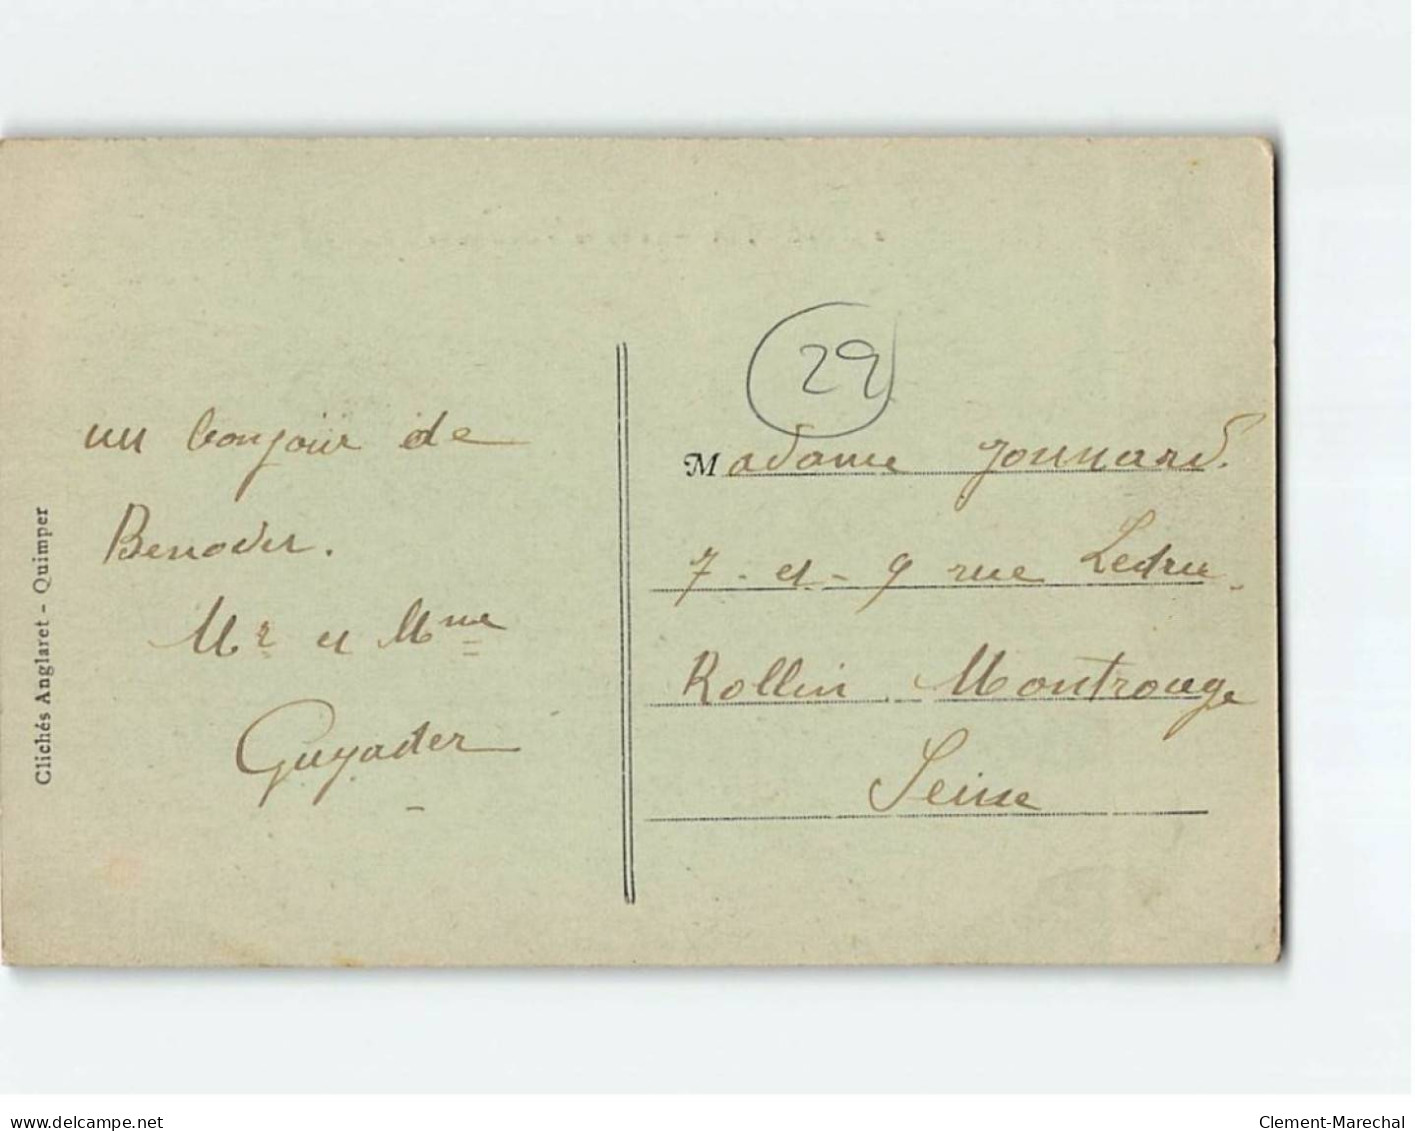 Clichés Anglaret - Quimper
un bonjour de
Benodet.
Mr et Mme
Guyader
29
Madame Jonnard.
7 - et - 9 rue Ledru -
Rollin Montrouge
Seine
delcampe.net
Clement-Marechal